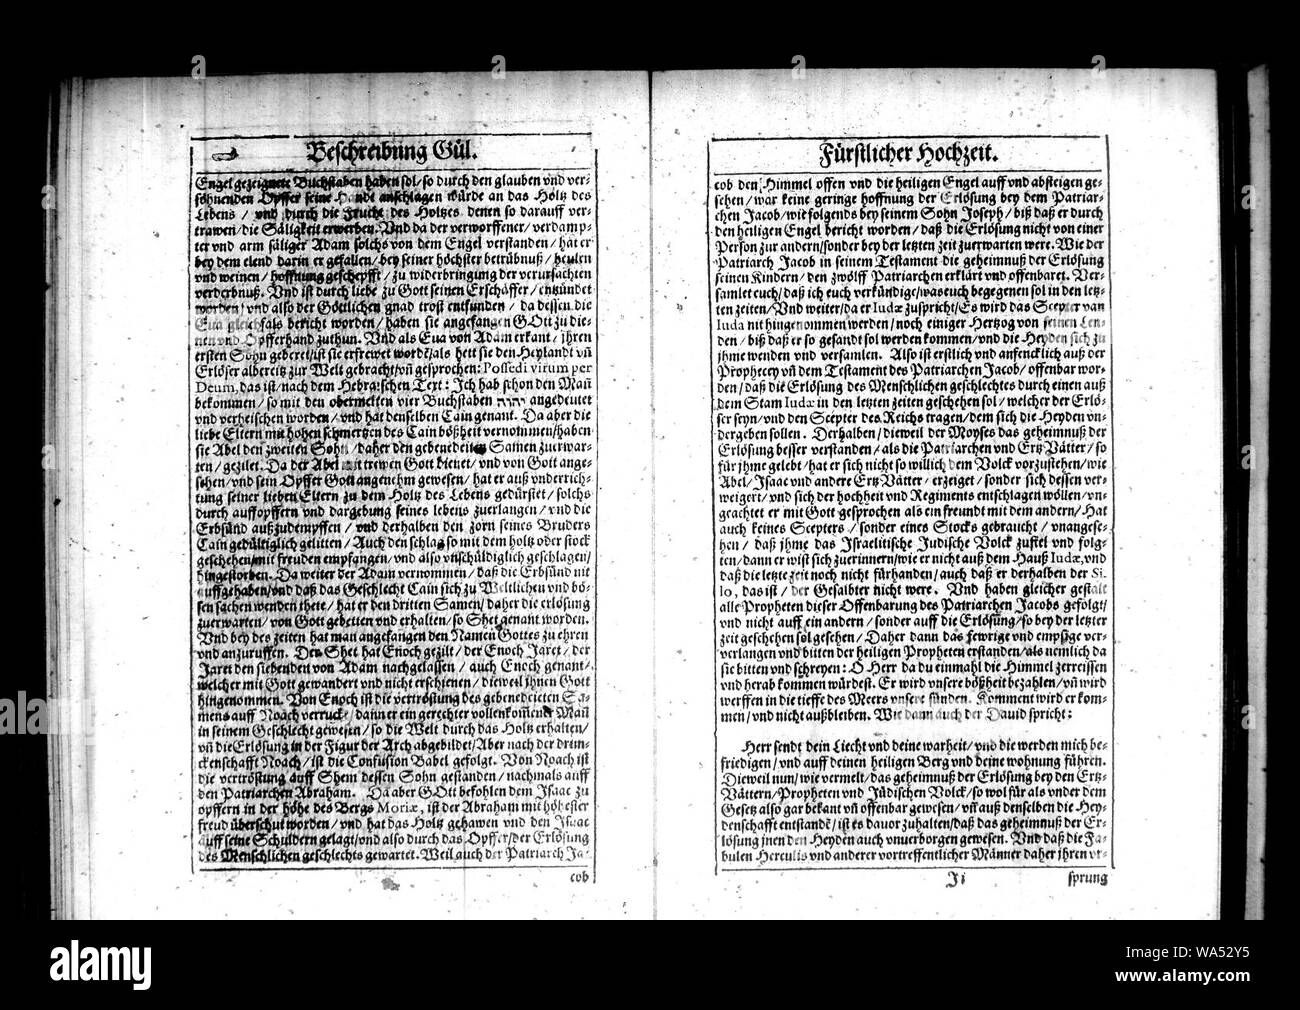 Beschreibung Gül.
Engel gezeignete Buchstaben haben sol/ so durch den glauben vnd ver-
söhnenden Opffer seine Handt anschlagen würde an das Holtz des
Lebens / vnd durch die Frucht des Holtzes denen so darauff ver-
trawen/ die Säligkeit erwerben. Vnd da der verworffener/ verdamp-
ter vnd arm säliger Adam solchs von dem Engel verstanden/ hat er
bey dem elend darin er gefallen/ bey seiner höchster betrübnuß/ heulen
vnd weinen/ hoffnung geschepfft/ zu widerbringung der verursachten
verderbnuß. Vnd ist durch liebe zu Gott seinen Erschäffer/ entzündet
worden/ vnd also der Göttlichen gnad trost entfunden/ da dessen die
Eua gleichfals bericht worden/ haben sie angefangen GOtt zu die-
nen vnd Opfferhand zuthun. Vnd als Eua von Adam erkant/ jhren
ersten Sohn geberel/ ist sie erfrewet wordē/ als hett sie den Heylandt vn̄
Erlöser albereitz zur Welt gebracht/ vn̄ gesprochen: Possedi virum per
Deum, das ist/ nach dem Hebraischen Text: Ich hab schon den Man̄
bekommen/ so mit den obermelten vier Buchstaben יהוה angedeutet
vnd verheischen worden/ vnd hat denselben Cain genant. Da aber die
liebe Eltern mit hohen schmertzen des Cain bößheit vernommen/ haben
sie Abel den zweiten Sohn/ daher den gebenedeiten Samen zuerwar-
ten/ gezilet. Da der Abel mit trewen Gott dienet/ vnd von Gott ange-
sehen/ vnd sein Opffer Gott angenehm gewesen/ hat er auß vnderrich-
tung seiner lieben Eltern zu dem Holtz des Lebens gedürstet/ solchs
durch auffopffern vnd dargebung seines lebens zuerlangen/ vnd die
Erbsünd außzudempffen/ vnd derhalben den zorn seines Bruders
Cain gedültiglich gelitten/ Auch den schlag so mit dem holtz oder stock
geschehen/ mit freuden empfangen/ vnd also vnschüldiglich geschlagen/
hingestorben. Da weiter der Adam vernommen/ daß die Erbsünd mit
auffgehaben/ vnd daß das Geschlecht Cain sich zu Weltlichen vnd bö-
sen sachen wenden thete/ hat er den dritten Samen/ daher die erlösung
zuerwarten/ von Gott gebetten vnd erhalten/ so Shet genant worden.
Vnd bey des zeiten hat man angefangen den Namen Gottes zu ehren
vnd anzuruffen. Der Shet hat Enoch gezilt/ der Enoch Jaret/ der
Jaret den siebenden von Adam nachgelassen/ auch Enoch genant/
welcher mit Gott gewandert vnd nicht erschienen/ dieweil jhnen Gott
hingenommen. Von Enoch ist die vertröstung des gebenedeieten Sa-
mens auff Noach verruckt/ dann er ein gerechter vollenkom̄ener Man̄
in seinem Geschlecht gewesen/ so die Welt durch das Holtz erhalten/
vn̄ die Erlösung in der Figur der Arch abgebildet/ Aber nach der drun-
ckenschafft Noach/ ist die Confusion Babel gefolgt. Von Noach ist
die vertröstung auff Shem dessen Sohn gestanden/ nachmals auff
den Patriarchen Abraham. Da aber GOtt befohlen dem Isaac zu
opffern in der höhe des Bergs Moriæ, ist der Abraham mit höhester
freud überschut worden/ vnd hat das Holtz gehawen vnd den Isaac
auff seine Schuldern gelagt/ vnd also durch das Opffer/ der Erlösung
des Menschlichen geschlechts gewartet. Weil auch der Patriarch Ja-
cob
Fürstlicher Hochzeit.
cob den Himmel offen vnd die heiligen Engel auff vnd absteigen ge-
sehen/ war keine geringe hoffnung der Erlösung bey dem Patriar-
chen Jacob/ wie folgends bey seinem Sohn Joseph/ biß daß er durch
den heiligen Engel bericht worden/ daß die Erlösung nicht von einer
Person zur andern/ sonder bey der letzten zeit zuerwarten were. Wie der
Patriarch Jacob in seinem Testament die geheimnuß der Erlösung
seinen Kindern/ den zwölff Patriarchen erklärt vnd offenbaret. Ver-
samlet euch/ daß ich euch verkündige/ was euch begegenen sol in den letz-
ten zeiten/ Vnd weiter/ da er Iudæ zuspricht/ Es wird das Scepter van
Iuda nit hingenommen werden/ noch einiger Hertzog von seinen Len-
den/ biß daß er so gesandt sol werden kommen/ vnd die Heyden sich zu
jhme wenden vnd versamlen. Also ist erstlich vnd anfencklich auß der
Prophecey vn̄ dem Testament des Patriarchen Jacob/ offenbar wor-
den/ daß die Erlösung des Menschlichen geschlechtes durch einen auß
dem Stam Iudæ in den letzten zeiten geschehen sol/ welcher der Erlö-
ser seyn/ vnd den Scepter des Reichs tragen/ dem sich die Heyden vn-
dergeben sollen. Derhalben/ dieweil der Moyses das geheimnuß der
Erlösung besser verstanden/ als die Patriarchen vnd Ertz Vätter/ so
für jhme gelebt/ hat er sich nicht so willich dem Volck vorzustehen/ wie
Abel/ Isaac vnd andere Ertz Vätter/ erzeiget/ sonder sich dessen ver-
weigert/ vnd sich der hochheit vnd Regiments entschlagen wöllen/ vn-
geachtet er mit Gott gesprochen als ein freundt mit dem andern/ Hat
auch keines Scepters / sonder eines Stocks gebraucht / vnangese-
hen / daß jhme das Israelitische Jüdische Volck zustel vnd folg-
ten/ dann er wist sich zuerinnern/ wie er nicht auß dem Hauß Iudæ, vnd
daß die letzte zeit noch nicht fürhanden/ auch daß er derhalben der Si-
lo, das ist / der Gesalbter nicht were. Vnd haben gleicher gestalt
alle Propheten dieser Offenbarung des Patriarchen Jacobs gefolgt/
vnd nicht auff ein andern / sonder auff die Erlösung/ so bey der letzter
zeit geschehen sol gesehen/ Daher dann das fewrige vnd empsige ver-
verlangen vnd bitten der heiligen Propheten erstanden/ als nemlich da
sie bitten vnd schreyen: O Herr da du einmahl die Himmel zerreissen
vnd herab kommen würdest. Er wird vnsere bößheit bezahlen/ vn̄ wird
werffen in die tieffe des Meers vnsere sünden. Komment wird er kom-
men/ vnd nicht außbleiben. Wie dann auch der David spricht:
Herr sendt dein Liecht vnd deine warheit/ vnd die werden mich be-
friedigen/ vnd auff deinen heiligen Berg vnd deine wohnung führen.
Dieweil nun/ wie vermelt/ das geheimnuß der Erlösung bey den Ertz-
Vättern/ Propheten vnd Jüdischen Volck/ so wol für als vnder dem
Gesetz also gar bekant vn̄ offenbar gewesen/ vn̄ auß denselben die Hey-
denschafft entstandē/ ist es davor zuhalten/ daß das geheimnuß der Er-
lösung jnen den Heyden auch vnuerborgen gewesen. Vnd daß die Fa-
bulen Herculis vnd anderer vortreffentlicher Männer daher jhren vr-
Ii sprung
alamy
Image ID: WA52Y5
www.alamy.com